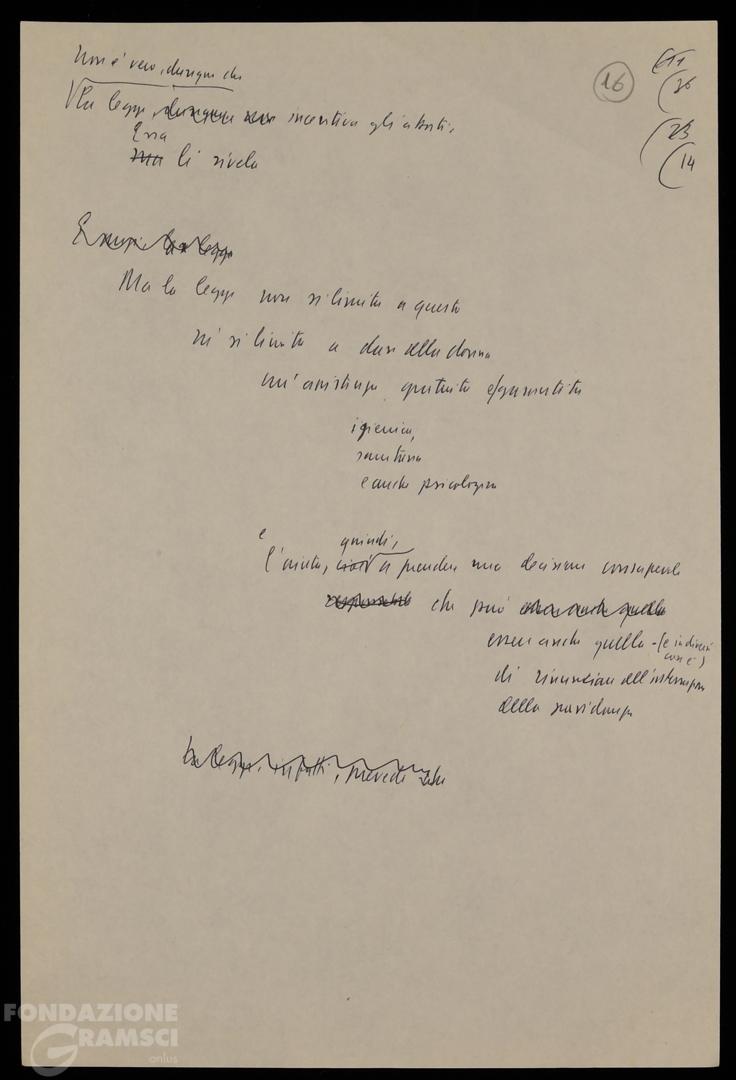 Non è vero, dunque che
La legge, dunque non incentiva gli aborti,
Essa
ma li rivela
16
26
23
14
E scusi, la legge
Ma la legge non si limita a questo
né si limita a dare alla donna
un'assistenza gratuita e garantita
igienica,
sanitaria
e anche psicologica
e quindi,
l'aiuta, cioè a prendere una decisione consapevole
che può essere anche quella
essere anche quella - (e in diversi casi è)
di rinunciare all'interruzione
della gravidanza
La legge, infatti, prevede che
FONDAZIONE
GRAMSCI
onlus